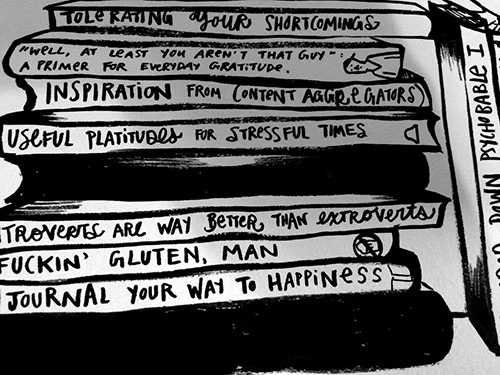 TOLERATING YOUR SHORTCOMINGS
"WELL, AT LEAST YOU AREN'T THAT GUY":
A PRIMER FOR EVERYDAY GRATITUDE.
INSPIRATION FROM CONTENT AGGREGATORS
USEFUL PLATITUDES FOR STRESSFUL TIMES
TROVERTS ARE WAY BETTER THAN EXTROVERTS
FUCKIN' GLUTEN, MAN
JOURNAL YOUR WAY TO HAPPINESS
DOWN PSYCHOBABLE I